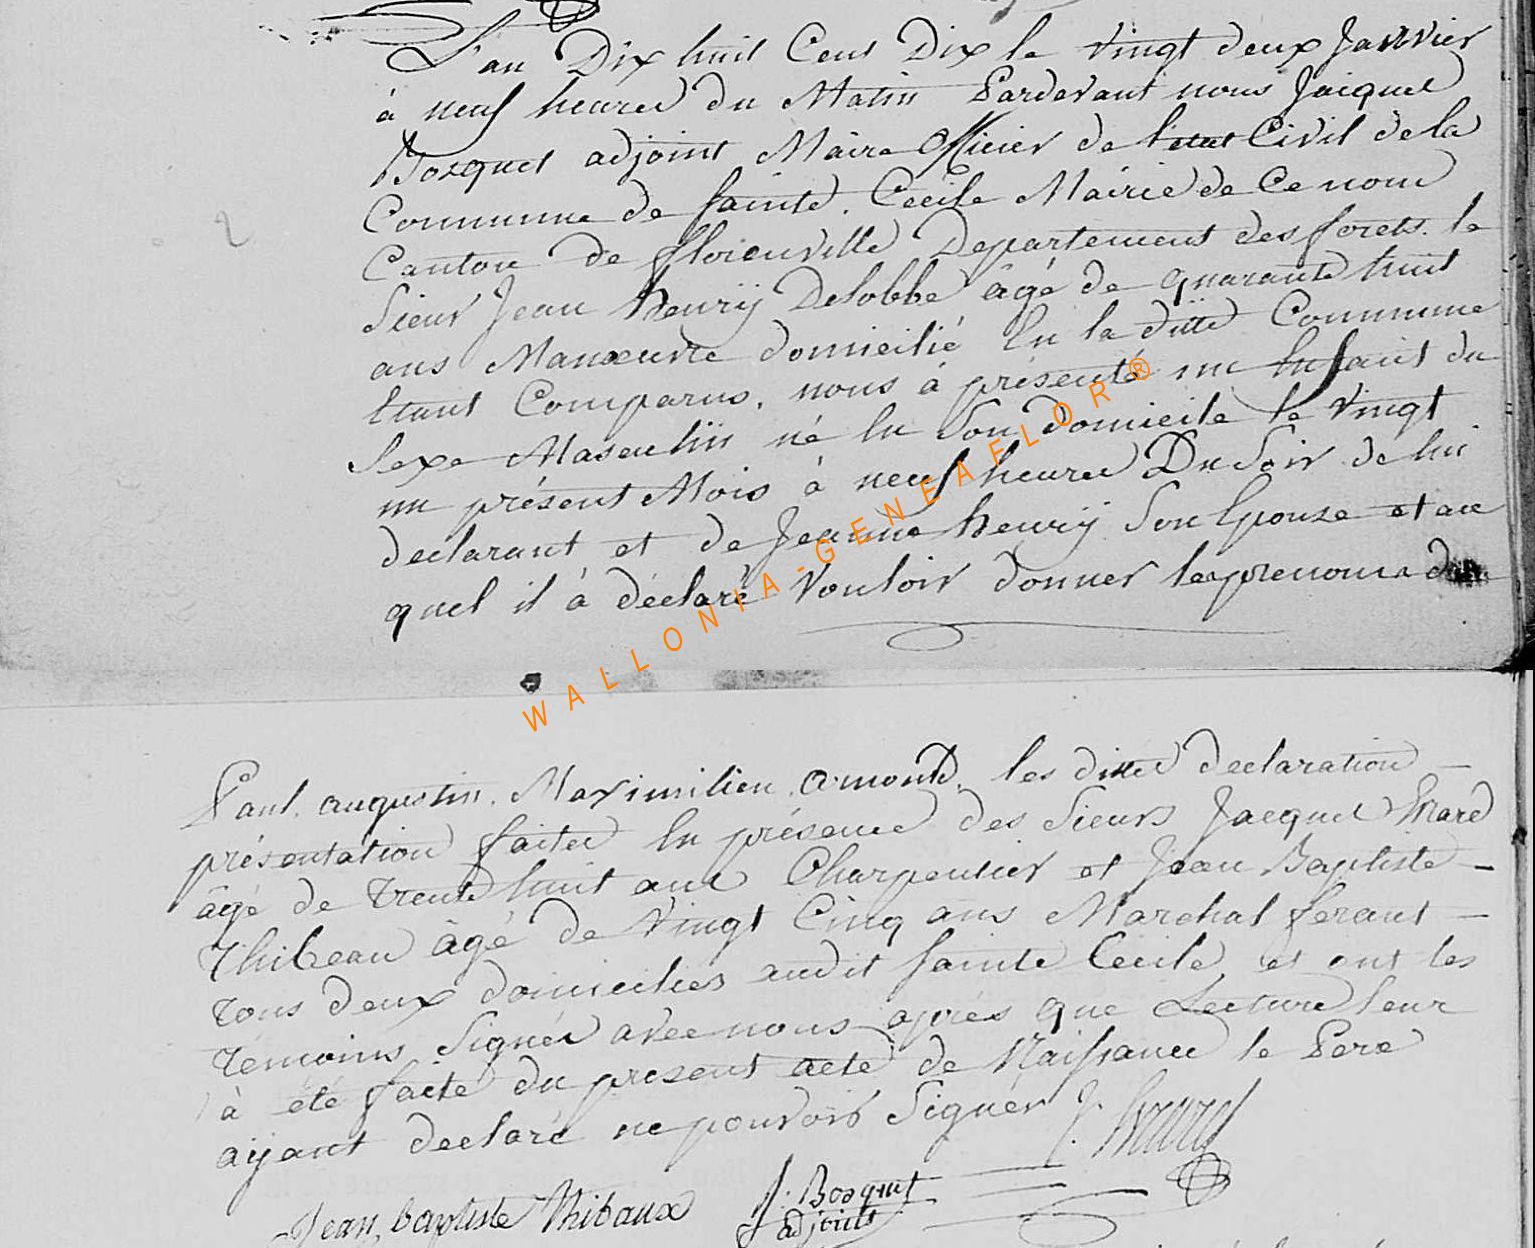 L'an Dix huit Cent Dix le vingt deux Janvier
à neuf heures du Matin Pardevant nous Jacques
Bosquet adjoint Maire Officier de l'etat Civil de la
Commune de Sainte Cecile Mairie de Ce nom
Canton de florenville Departement des forets. le
Sieur Jean henrÿ Delobbe âgé de quarante huit
ans Manœuvre domicilié En la ditte Commune
Etant Comparus, nous à présenté un Enfant du
Sexe Masculin né En Son domicile le vingt
un présent Mois à neuf heures Du Soir de lui
declarant et de Jeanne henrÿ Son Epouse et au
quel il à déclaré Vouloir donner les prenoms de
WALLONIA-GENEAFLOR®
Paul. augustin. Maximilien. amond. les dittes declaration
présentation faites En présence des Sieurs Jacques
âgé de trente huit ans Charpentier et Jean Baptiste
Thibeau âgé de Vingt Cinq ans Marchal ferant
tous deux domiciliés audit Sainte Cecile, et ont les
témoins Signés avec nous après que Lecture leur
à été faite du présent acte de Naissance le Pere
aÿant declaré ne pouvoir Signer J.
J. Bosquet
adjoint
Jean baptiste Thibaux